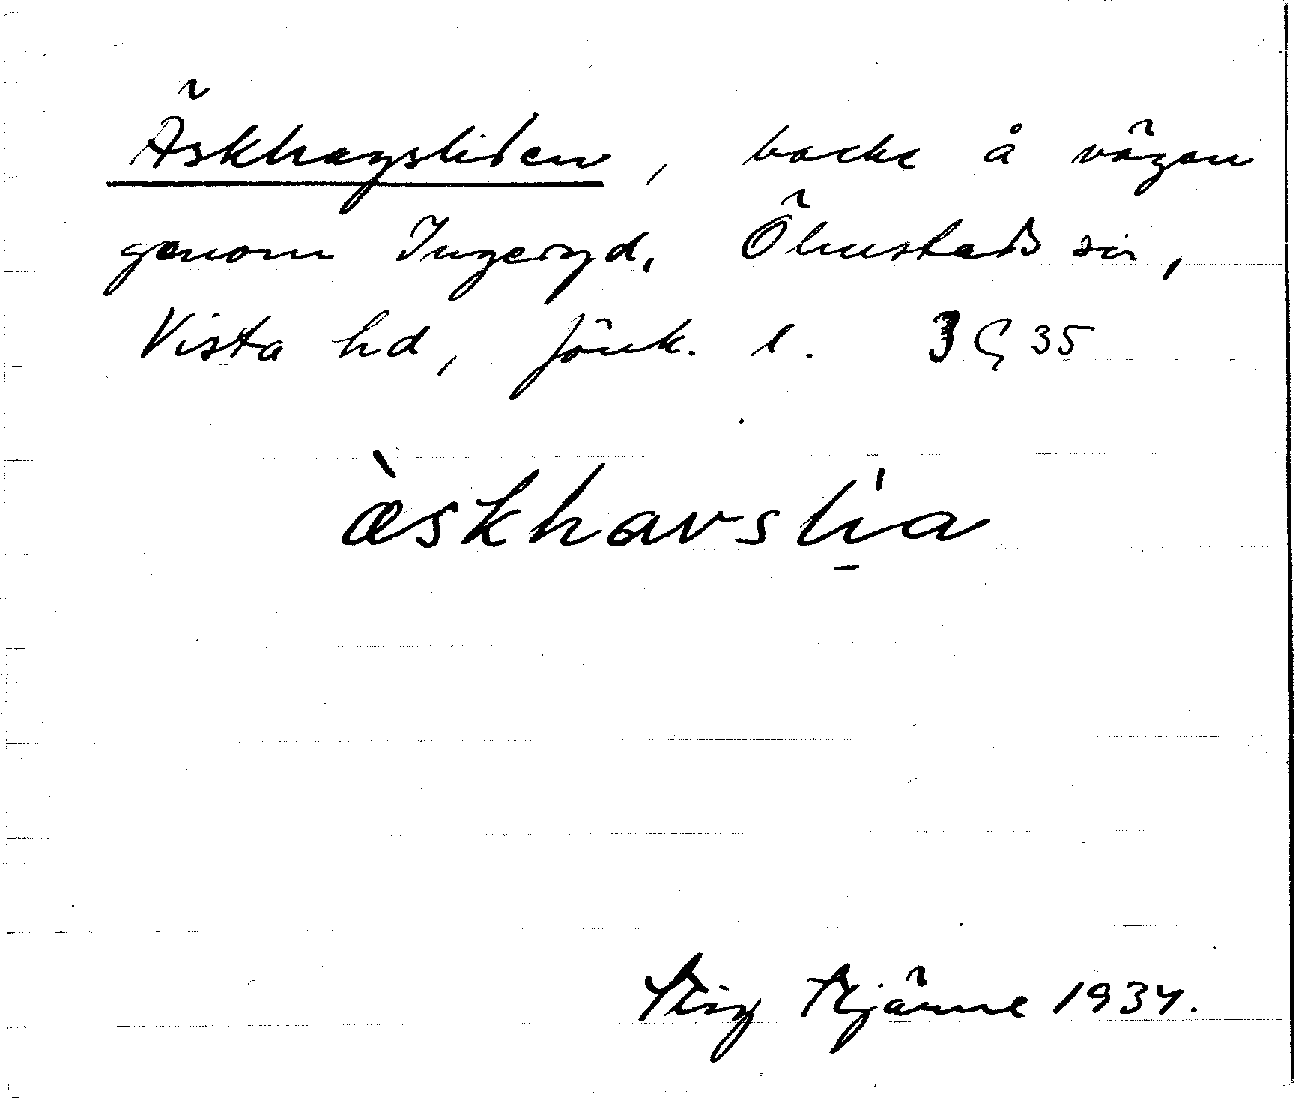 Äskhagsliden, backe å vägen
genom Ingeryd, Ölmstads sn,
Vista hd, Jönk. l. 3 Ç 35
æ̀skhavsli̠a
Stig Hjärne 1934.